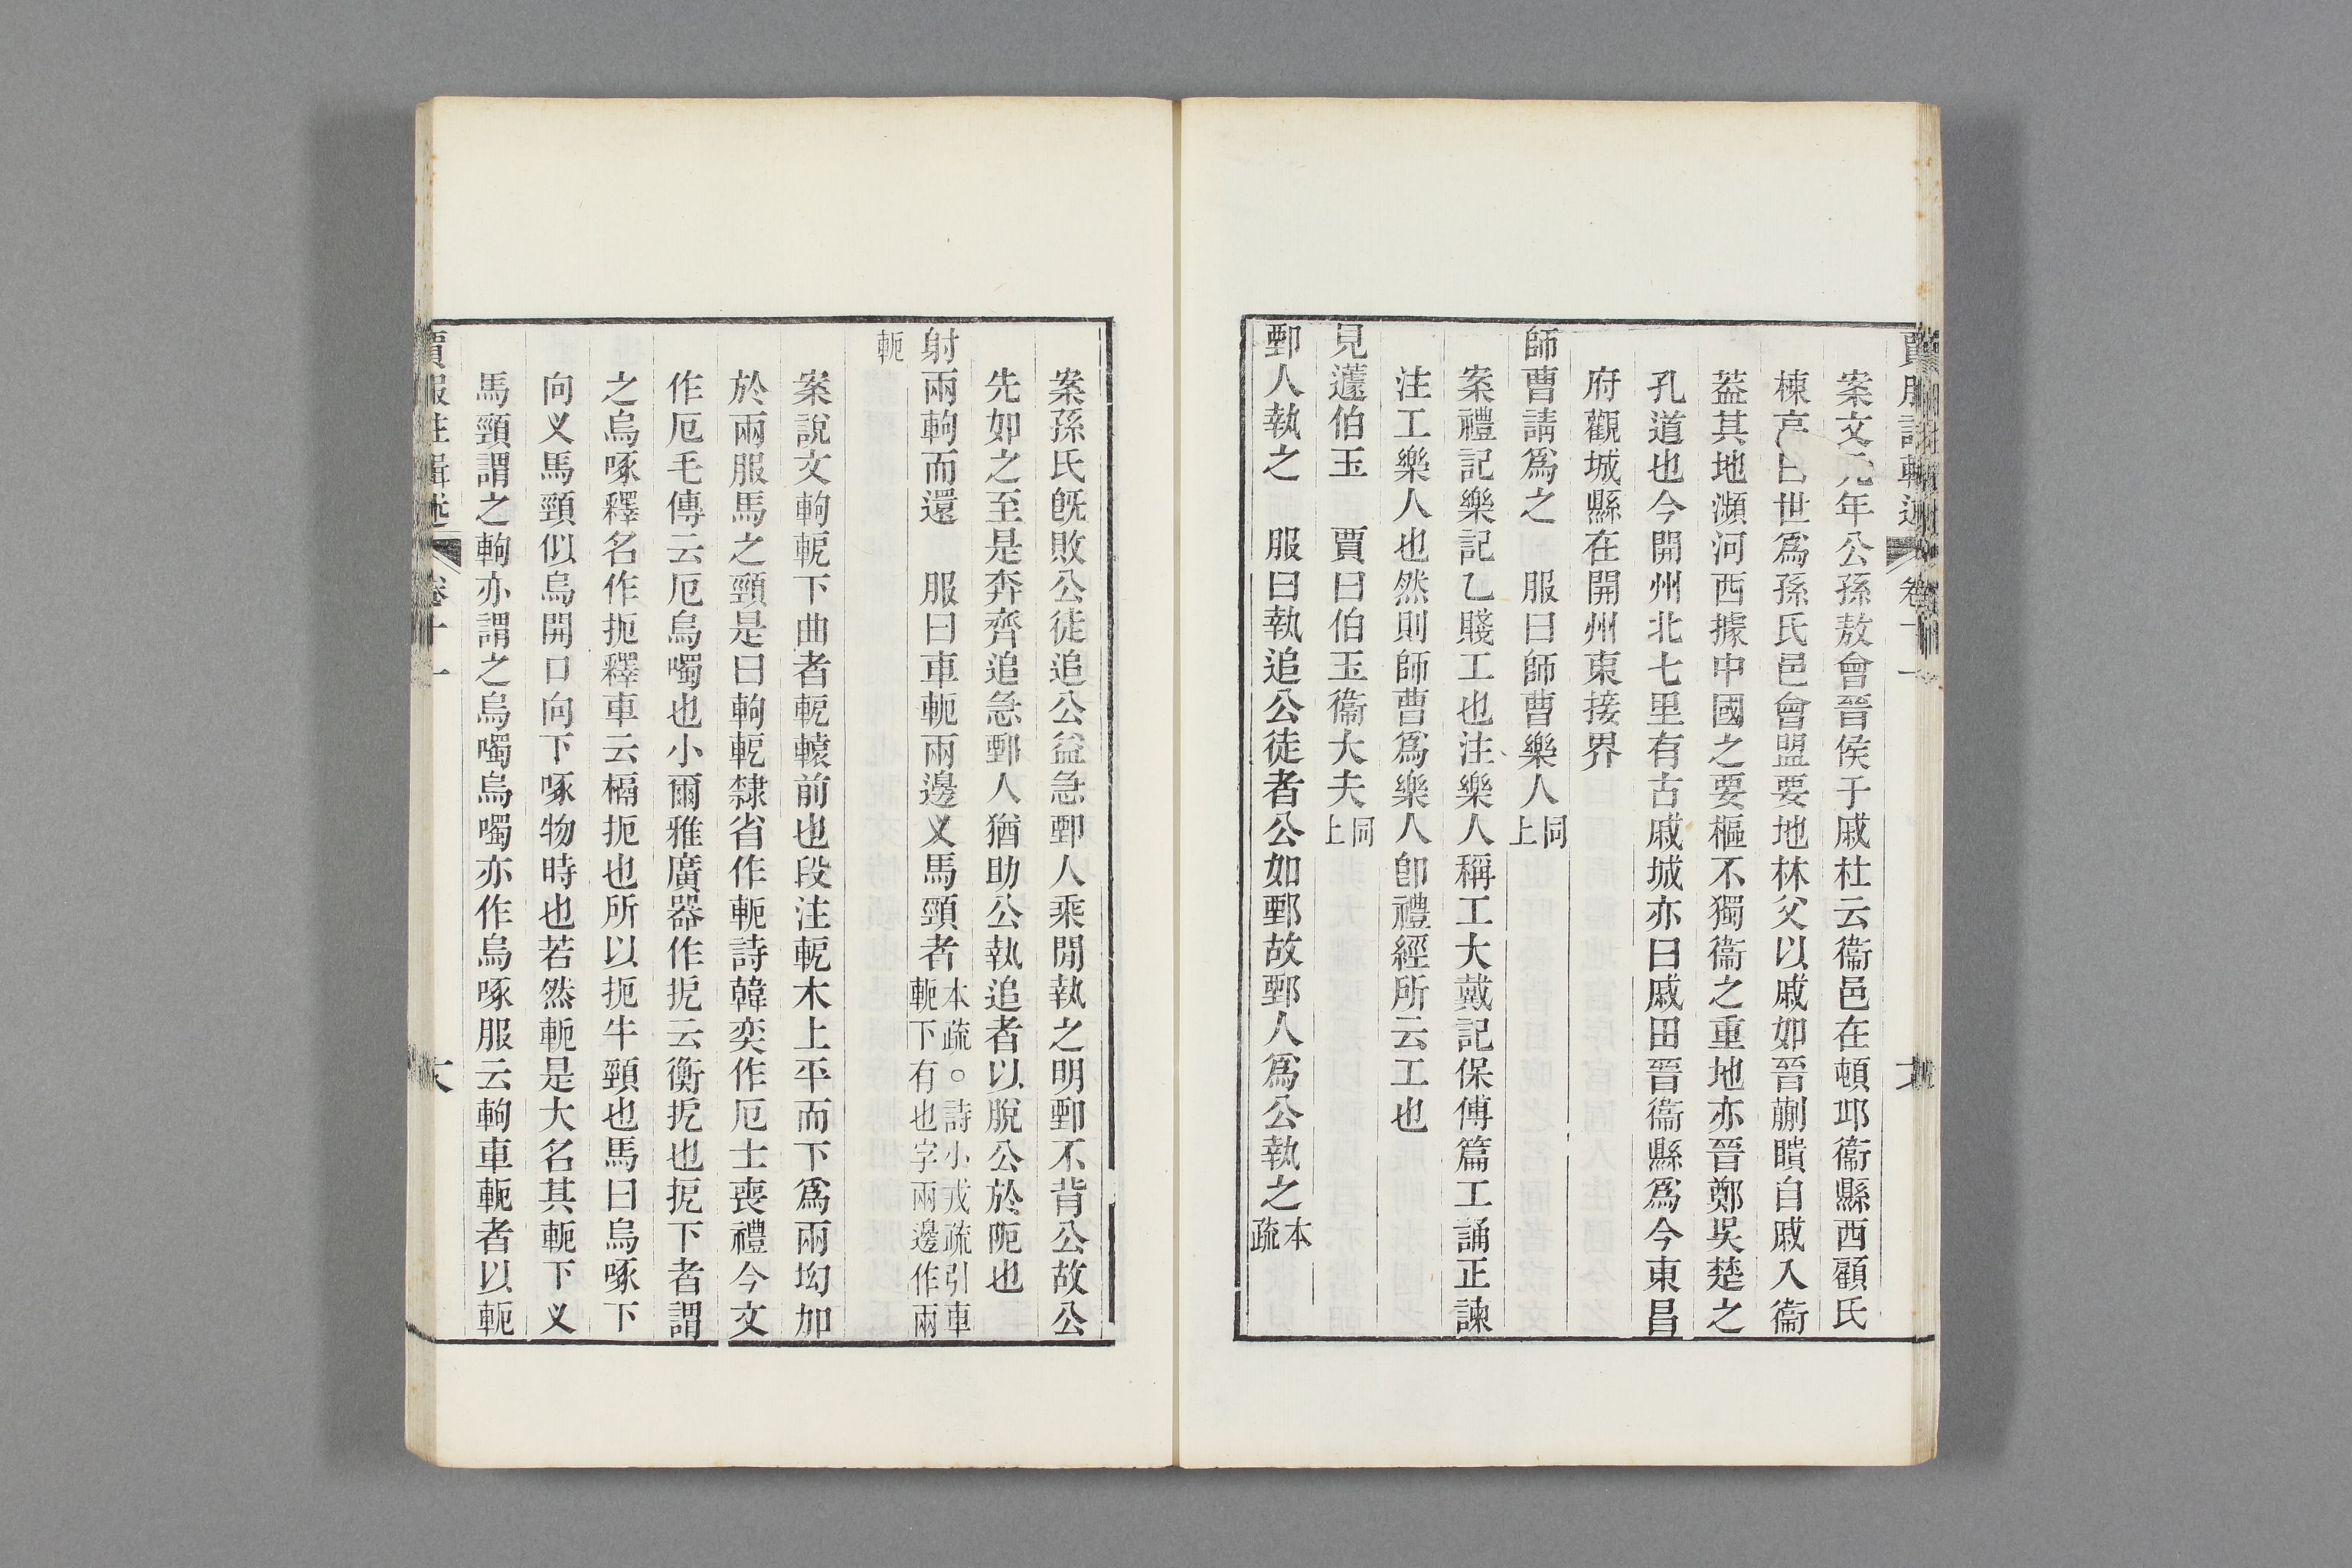 案文元年公孫敖會晉侯于戚杜云衞邑在頓邱衞縣西顧氏
棟高曰世爲孫氏邑會盟要地林父以戚如晉蒯聵自戚入衞
葢其地瀕河西據中國之要樞不獨衞之重地亦晉鄭吳楚之
孔道也今開州北七里有古戚城亦曰戚田晉衞縣爲今東昌
府觀城縣在開州東接界
師曹請爲之　服曰師曹樂人同上
案禮記樂記乙賤工也注樂人稱工大戴記保傅篇工誦正諫
注工樂人也然則師曹爲樂人卽禮經所云工也
見蘧伯玉　賈曰伯玉衞大夫同上
鄄人執之　服曰執追公徒者公如鄄故鄄人爲公執之本疏
案孫氏旣敗公徒追公益急鄄人乘閒執之明鄄不背公故公
先如之至是奔齊追急鄄人猶助公執追者以脫公於阨也
射兩軥而還　服曰車軛兩邊义馬頸者本疏○詩小戎疏引車軛下有也字兩邊作兩
軛
案說文軥軶下曲者軶轅前也段注軶木上平而下爲兩坳加
於兩服馬之頸是曰軥軶隸省作軛詩韓奕作厄士喪禮今文
作厄毛傳云厄烏噣也小爾雅廣器作扼云衡扼也扼下者謂
之烏啄釋名作扼釋車云槅扼也所以扼牛頸也馬曰烏啄下
向义馬頸似烏開口向下啄物時也若然軛是大名其軛下义
馬頸謂之軥亦謂之烏噣烏噣亦作烏啄服云軥車軛者以軛
賈服注輯述　卷十一